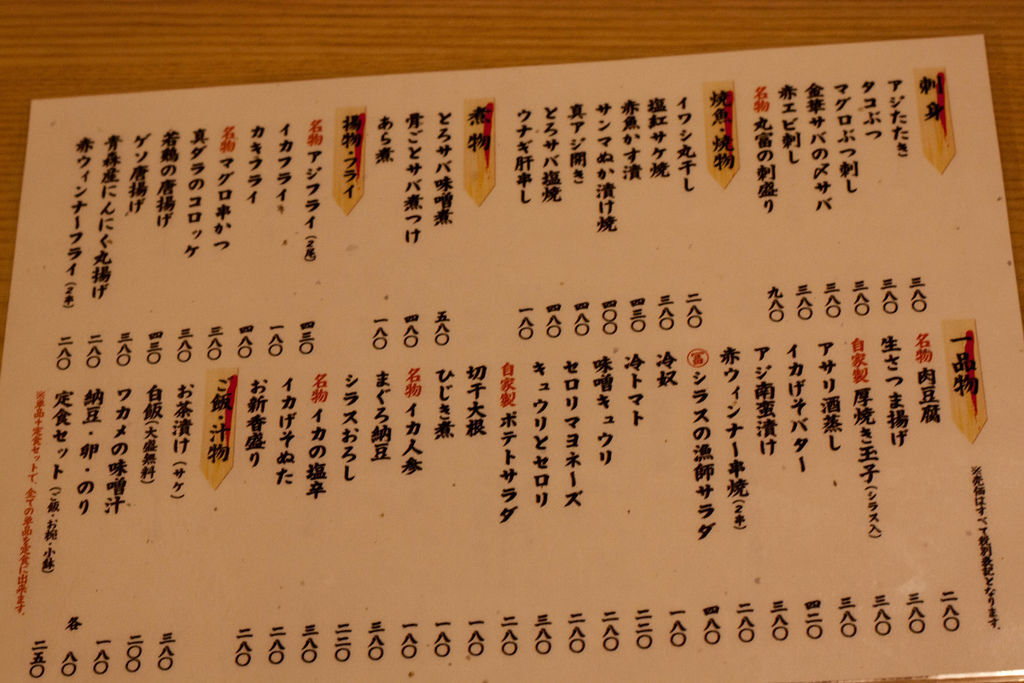 刺身
アジたたき 三八〇
タコぶつ 三八〇
マグロぶつ刺し 三八〇
金華サバの〆サバ 三八〇
赤エビ刺し 三八〇
名物 丸冨の刺盛り 九八〇
焼魚・焼物
イワシ丸干し 二八〇
塩紅サケ焼 三八〇
赤魚かす漬 四三〇
サンマぬか漬け焼 四〇〇
真アジ開き 四八〇
とろサバ塩焼 四八〇
ウナギ肝串し 一八〇
煮物
とろサバ味噌煮 五八〇
骨ごとサバ煮つけ 四八〇
あら煮 一八〇
揚物・フライ
名物 アジフライ(2尾) 四三〇
イカフライ 一八〇
カキフライ 四八〇
名物 マグロ串かつ 三八〇
真ダラのコロッケ 三八〇
若鶏の唐揚げ 四三〇
ゲソ唐揚げ 三八〇
青森産にんにく丸揚げ 二八〇
赤ウィンナーフライ(2本) 二八〇
※売価はすべて税別表記となります。
一品物
名物 肉豆腐 二八〇
生さつま揚げ 三八〇
自家製 厚焼き玉子(シラス入) 三八〇
アサリ酒蒸し 三八〇
イカげそバター 四二〇
アジ南蛮漬け 三八〇
赤ウィンナー串焼(2本) 二八〇
冨 シラスの漁師サラダ 四八〇
冷奴 一八〇
冷トマト 二二〇
味噌キュウリ 二八〇
セロリマヨネーズ 二八〇
キュウリとセロリ 三八〇
自家製 ポテトサラダ 二八〇
切干大根 一八〇
ひじき煮 一八〇
名物 イカ人参 一八〇
まぐろ納豆 三八〇
シラスおろし 二二〇
名物 イカの塩辛 三八〇
イカげそぬた 二八〇
お新香盛り 二八〇
ご飯・汁物
お茶漬け(サケ) 三八〇
白飯(大盛無料) 二〇〇
ワカメの味噌汁 一八〇
納豆・卵・のり 各 八〇
定食セット(ご飯・お椀・小鉢) 二五〇
※単品+定食セットで、全ての単品を定食に出来ます。